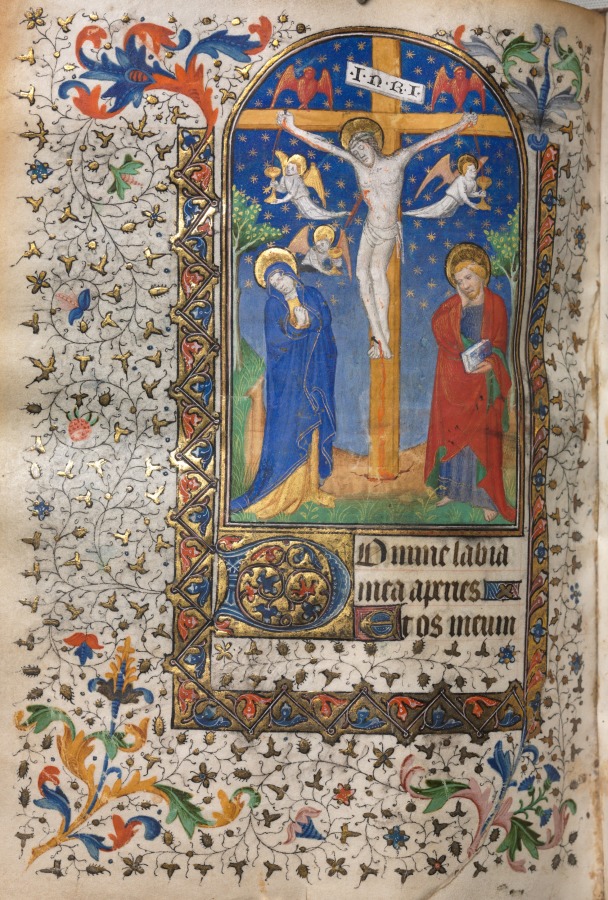 ·I·n·R·I·
Domine labia
mea aperies
Et os meum